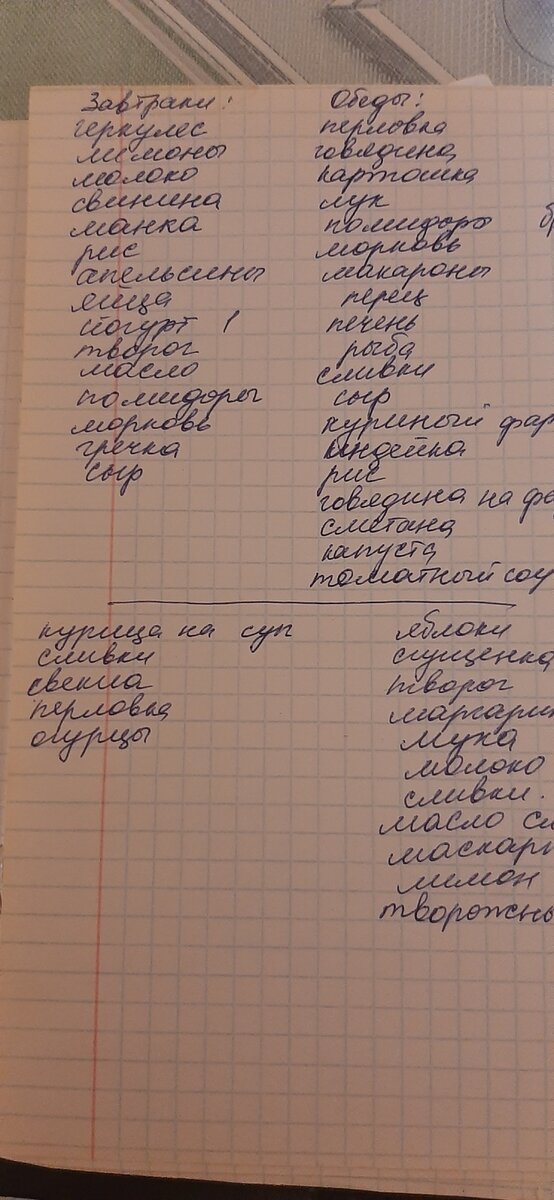 Завтраки:
геркулес
лимоны
молоко
свинина
манка
рис
апельсины
яйца
йогурт !
творог
масло
помидоры
морковь
гречка
сыр
Обеды:
перловка
говядина
картошка
лук
помидоры
морковь
макароны
перец
печень
рыба
сливки
сыр
куриный фар
индейка
рис
говядина на фа
сметана
капуста
томатный соу
курица на суп
сливки
свекла
перловка
огурцы
яблоки
сгущенка
творог
маргари
мука
молоко
сливки.
масло сл
маскарп
лимон
творожны